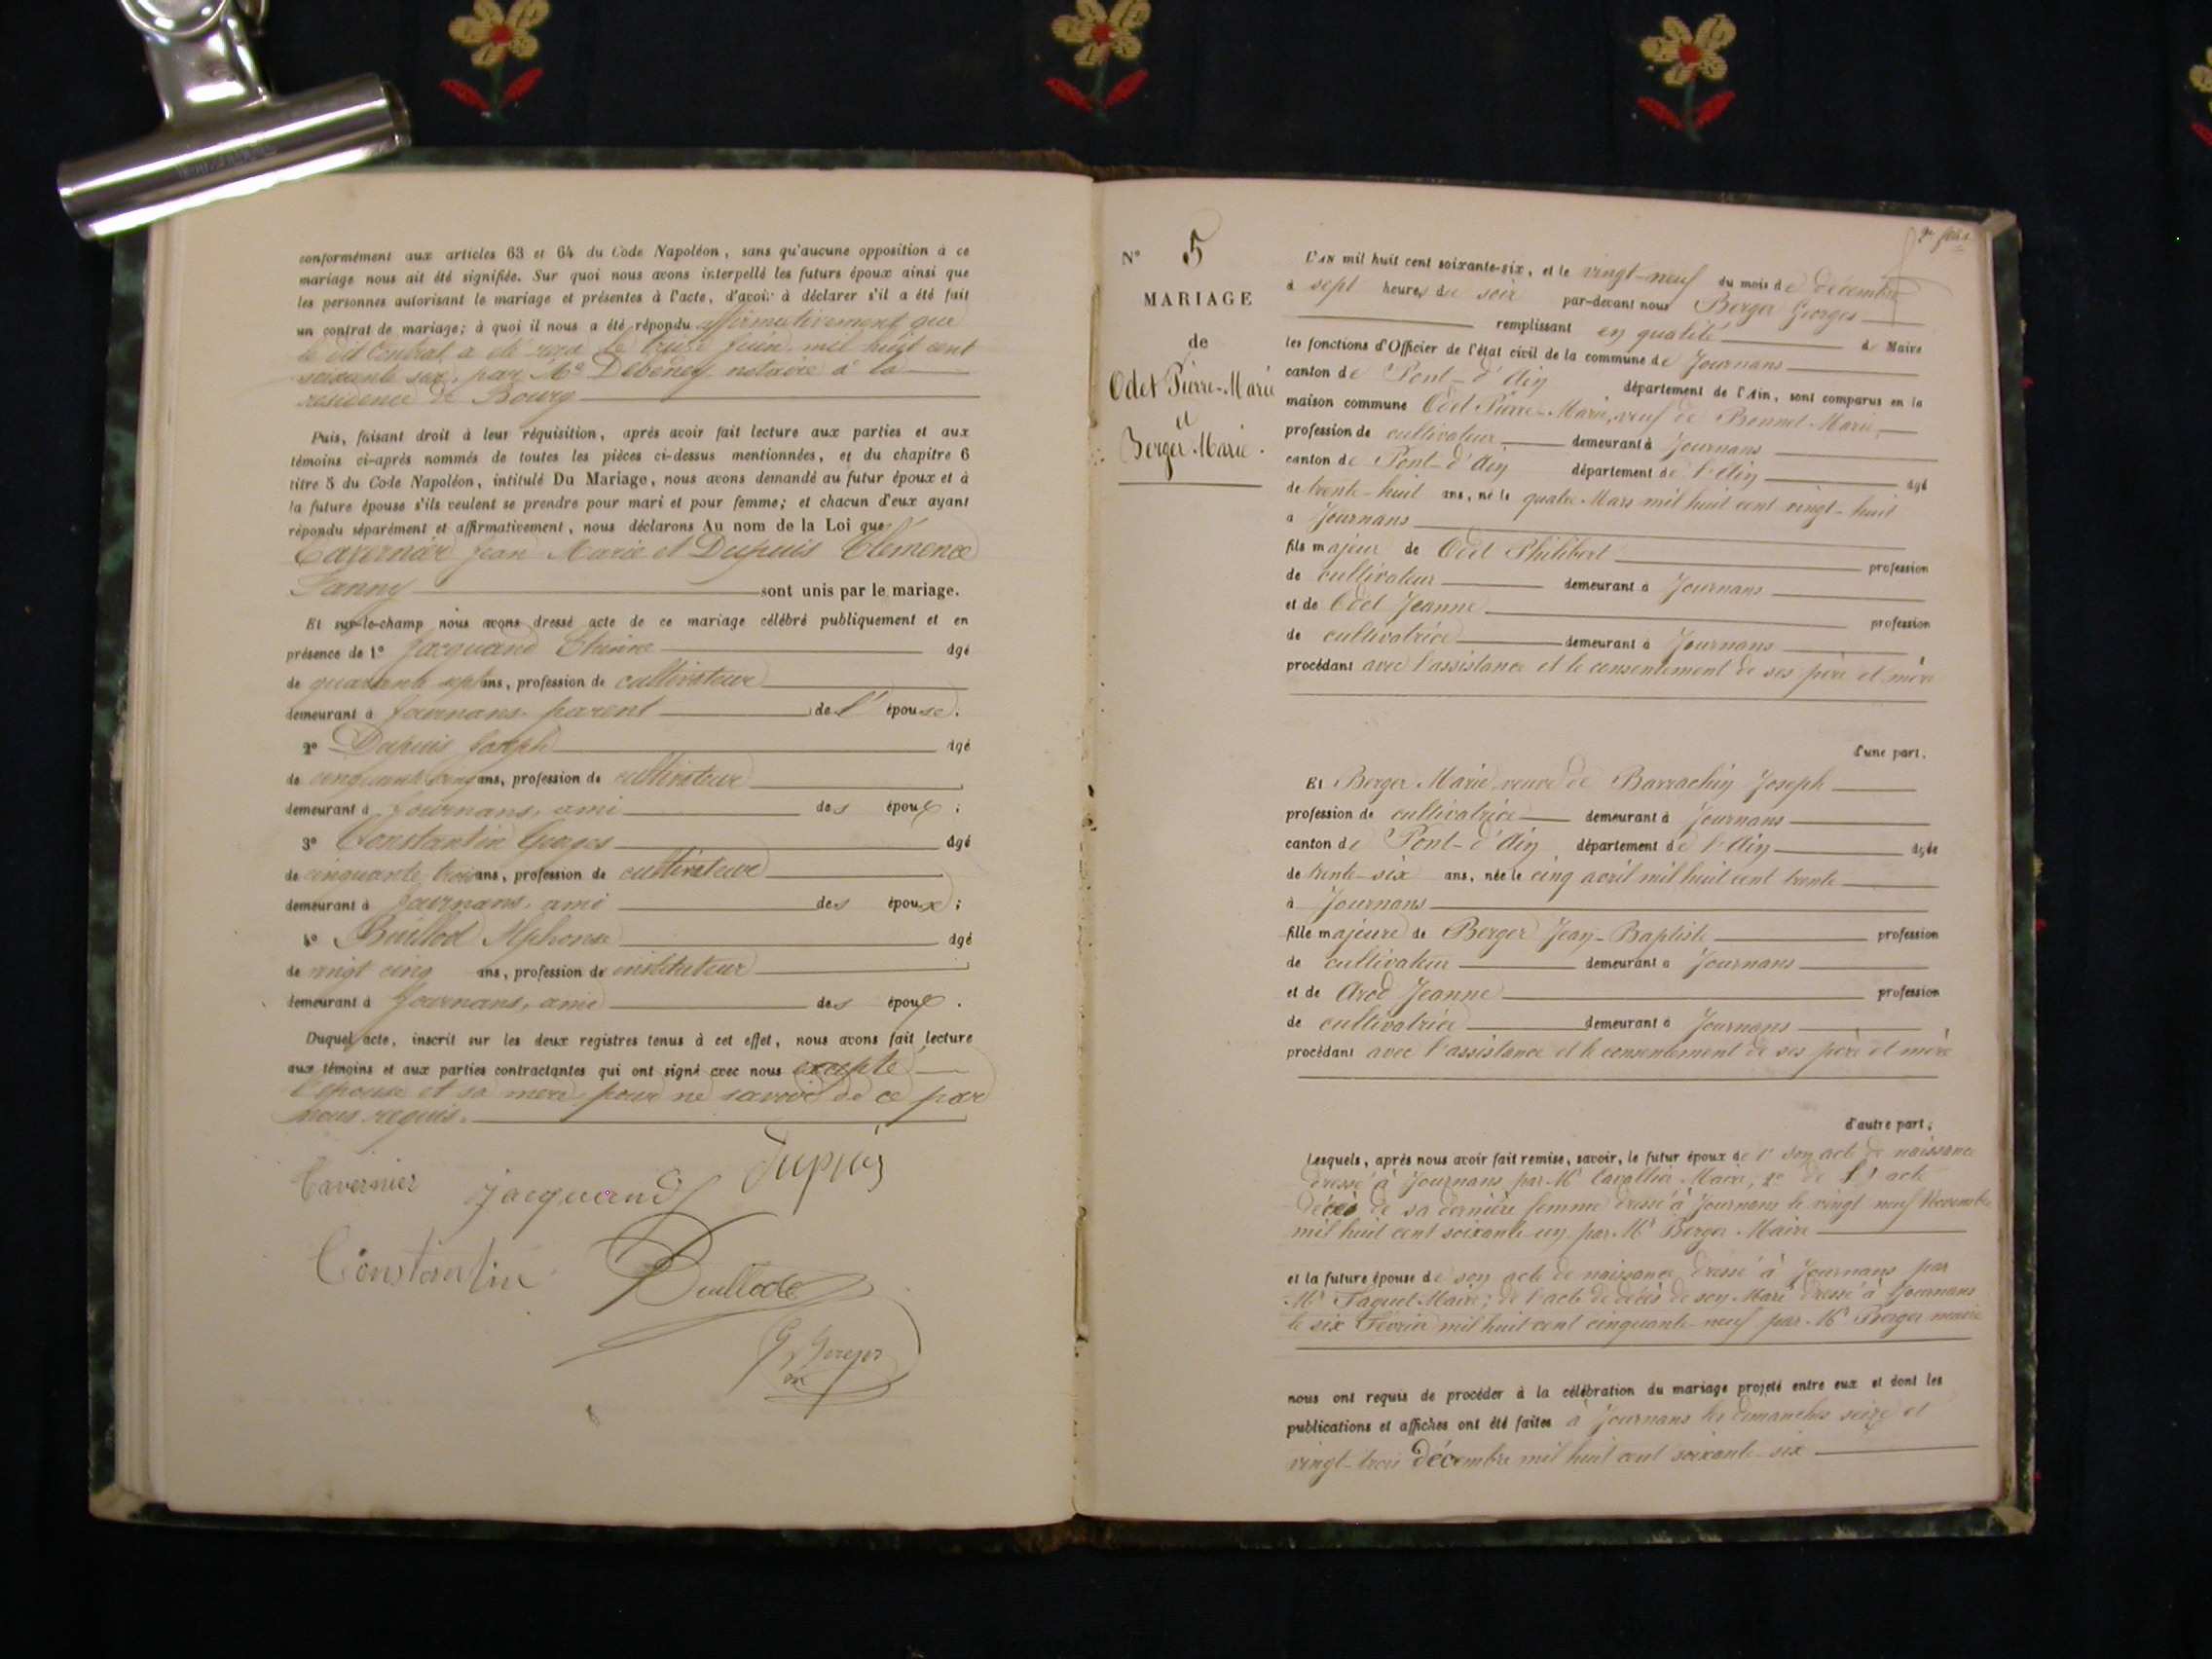 conformément aux articles 63 et 64 du Code Napoléon, sans qu'aucune opposition à ce
mariage nous ait été signifiée. Sur quoi nous avons interpellé les futurs époux ainsi que
les personnes autorisant le mariage et présentes à l'acte, d'avoir à déclarer s'il a été fait
un contrat de mariage; à quoi il nous a été répondu affirmativement que
le dit Contrat a été le treize juin mil huit cent
soixante six, par Me Debeney notaire à la
résidence de Bourg
Puis, faisant droit à leur réquisition, après avoir fait lecture aux parties et aux
témoins ci-après nommés de toutes les pièces ci-dessus mentionnées, et du chapitre 6
titre 5 du Code Napoléon, intitulé Du Mariage, nous avons demandé au futur époux et à
la future épouse s'ils veulent se prendre pour mari et pour femme; et chacun d'eux ayant
répondu séparément et affirmativement, nous déclarons Au nom de la Loi que
Tavernier Jean Marie et Dupuis Clémence
Fanny sont unis par le mariage.
Et sur-le-champ nous avons dressé acte de ce mariage célébré publiquement et en
présence de 1° Jacquand Etienne âgé
de quarante sept ans, profession de cultivateur
demeurant à Journans parent de l'épouse.
2° Dupuis Joseph âgé
de cinquante cinq ans, profession de cultivateur
demeurant à Journans, ami des époux;
3° Constantin Georges âgé
de cinquante trois ans, profession de cultivateur
demeurant à Journans, ami des époux;
4° Buillod Alphonse âgé
de vingt cinq ans, profession de instituteur
demeurant à Journans, ami des époux.
Duquel acte, inscrit sur les deux registres tenus à cet effet, nous avons fait lecture
aux témoins et aux parties contractantes qui ont signé avec nous excepté
l'épouse et sa mère pour ne savoir de ce par
nous requis.
Tavernier Jacquand Dupuis
Constantin Buillod
G. Berger
N° 5
MARIAGE
de
Odet Pierre-Marie
et
Berger Marie.
L'AN mil huit cent soixante-six, et le vingt-neuf du mois de décembre
à sept heures du soir par-devant nous Berger Georges
remplissant en qualité de Maire
les fonctions d'Officier de l'état civil de la commune de Journans
canton de Pont-d'Ain département de l'Ain, sont comparus en la
maison commune Odet Pierre-Marie, veuf de Bonnet Marie,
profession de cultivateur demeurant à Journans
canton de Pont-d'Ain département de l'Ain âgé
de trente-huit ans, né le quatre Mars mil huit cent vingt-huit
à Journans
fils majeur de Odet Philibert profession
de cultivateur demeurant à Journans
et de Odet Jeanne profession
de cultivatrice demeurant à Journans
procédant avec l'assistance et le consentement de ses père et mère
d'une part.
Et Berger Marie, veuve de Barrachin Joseph
profession de cultivatrice demeurant à Journans
canton de Pont-d'Ain département de l'Ain âgée
de trente-six ans, née le cinq avril mil huit cent trente
à Journans
fille majeure de Berger Jean-Baptiste profession
de cultivateur demeurant à Journans
et de Arod Jeanne profession
de cultivatrice demeurant à Journans
procédant avec l'assistance et le consentement de ses père et mère
d'autre part;
Lesquels, après nous avoir fait remise, savoir, le futur époux de 1° son acte de naissance
dressé à Journans par Mr Cavallier Maire, 2° de l'acte
décès de sa dernière femme dressé à Journans le vingt neuf Novembre
mil huit cent soixante-un par Mr Berger Maire
et la future épouse de son acte de naissance dressé à Journans par
Mr Faguet Maire; de l'acte de décès de son Mari dressé à Journans
le six Février mil huit cent cinquante-neuf par Mr Berger maire
nous ont requis de procéder à la célébration du mariage projeté entre eux et dont les
publications et affiches ont été faites à Journans les dimanches seize et
vingt-trois décembre mil huit cent soixante-six